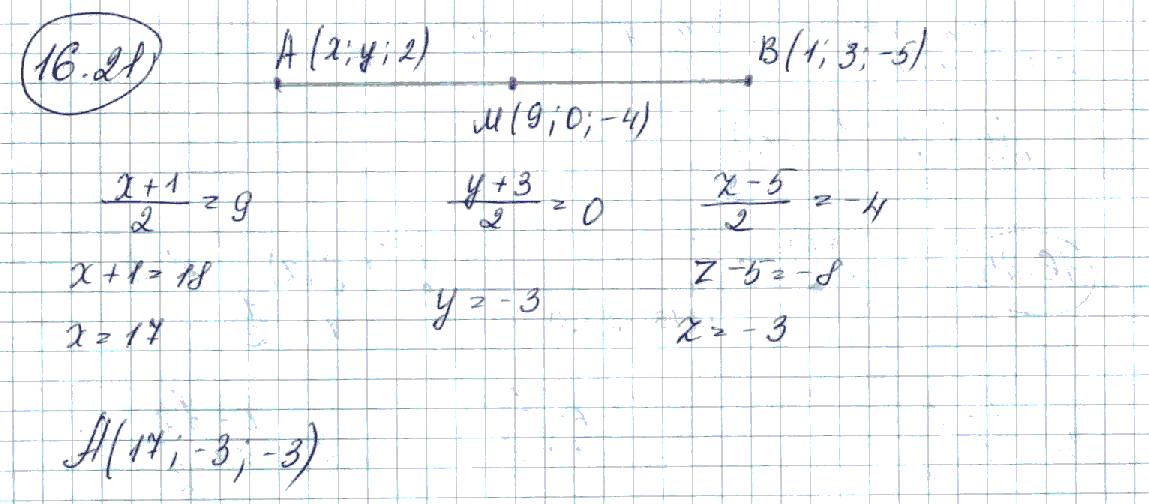 16.21
A(x; y; z) B(1; 3; -5)
M(9; 0; -4)
(x+1)/2 = 9 (y+3)/2 = 0 (z-5)/2 = -4
x+1=18 z-5=-8
y=-3
x=17 z=-3
A(17; -3; -3)